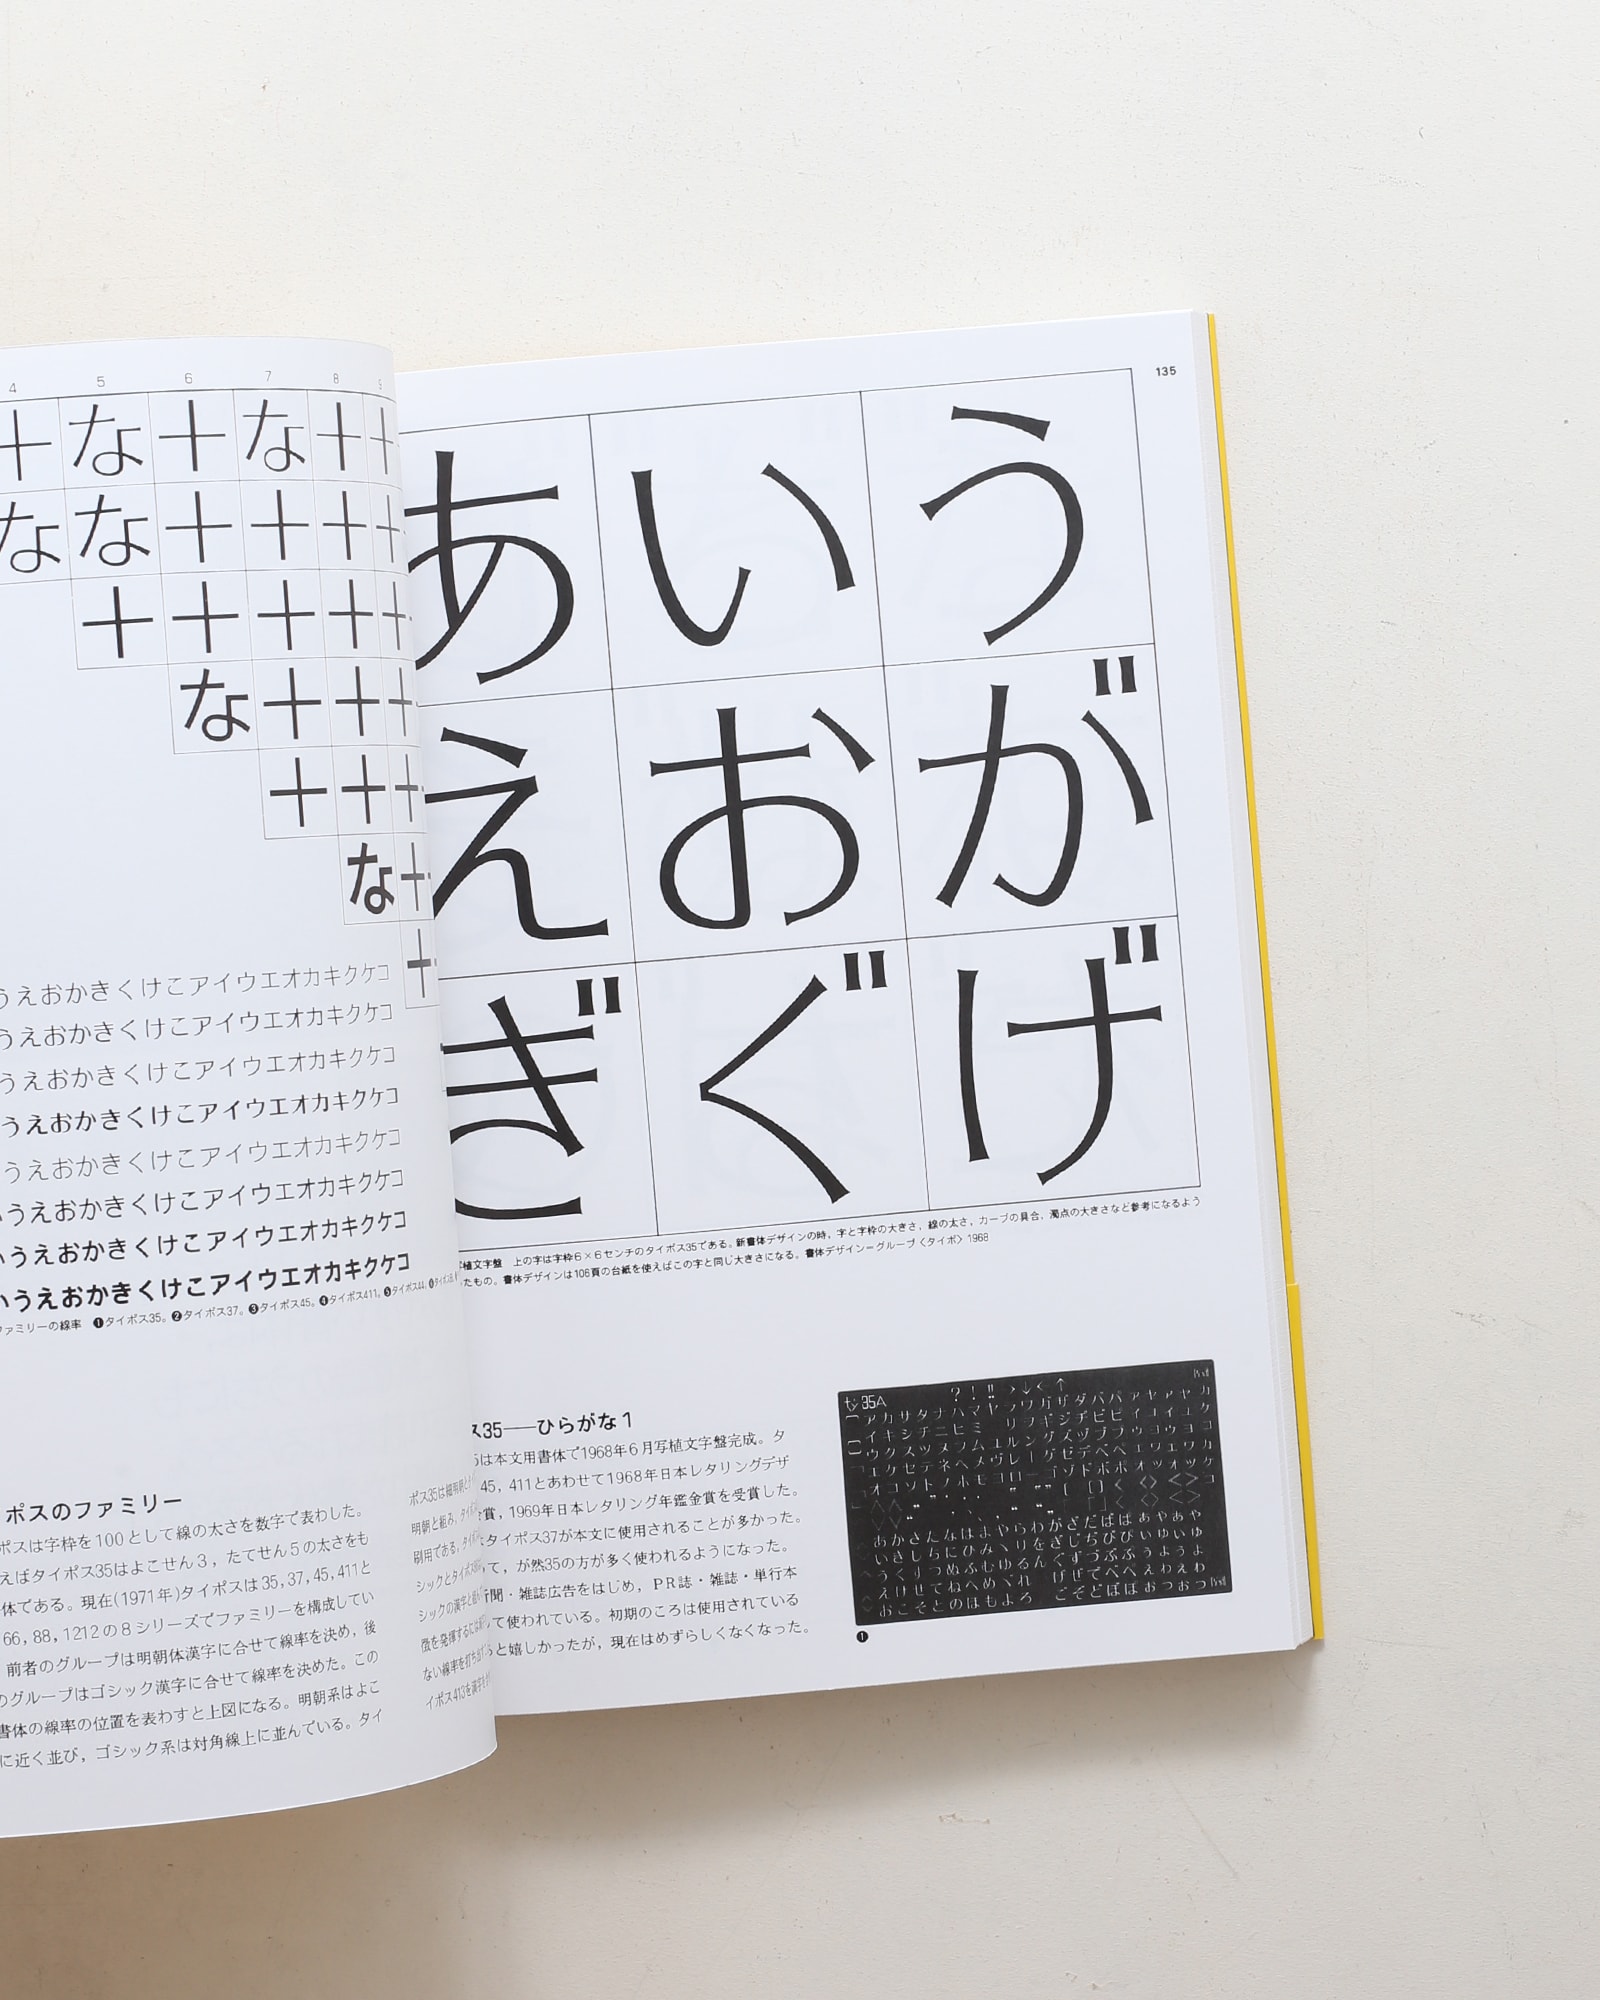 4 5 6 7 8 9
十 な 十 な 十 十
な な 十 十 十 十
十 十 十 十 十
な 十 十 十
十 十 十
な 十
十
うえおかきくけこアイウエオカキクケコ
うえおかきくけこアイウエオカキクケコ
うえおかきくけこアイウエオカキクケコ
うえおかきくけこアイウエオカキクケコ
うえおかきくけこアイウエオカキクケコ
うえおかきくけこアイウエオカキクケコ
いうえおかきくけこアイウエオカキクケコ
いうえおかきくけこアイウエオカキクケコ
ファミリーの線率 ❶タイポス35。❷タイポス37。❸タイポス45。❹タイポス411。❺タイポス44。
ポスのファミリー
ポスは字枠を100として線の太さを数字で表わした。
えばタイポス35はよこせん3，たてせん5の太さをも
体である。現在(1971年)タイポスは35,37,45,411と
66,88,1212の8シリーズでファミリーを構成してい
前者のグループは明朝体漢字に合せて線率を決め，後
のグループはゴシック漢字に合せて線率を決めた。この
書体の線率の位置を表わすと上図になる。明朝系はよこ
に近く並び，ゴシック系は対角線上に並んでいる。タイ
135
あ い う
え お が
ぎ ぐ げ
写植文字盤 上の字は字枠6×6センチのタイポス35である。新書体デザインの時，字と字枠の大きさ，線の太さ，カーブの具合，濁点の大きさなど参考になるよう
たもの。書体デザインは106頁の台紙を使えばこの字と同じ大きさになる。書体デザイン＝グループ〈タイポ〉1968
ス35──ひらがな1
5は本文用書体で1968年6月写植文字盤完成。タ
45，411とあわせて1968年日本レタリングデザ
賞，1969年日本レタリング年鑑金賞を受賞した。
タイポス37が本文に使用されることが多かった。
て，が然35の方が多く使われるようになった。
新聞・雑誌広告をはじめ，PR誌・雑誌・単行本
て使われている。初期のころは使用されている
と嬉しかったが，現在はめずらしくなくなった。
35A
？！‼
アカサタナハマヤラワガザダバパァヤァヤカ
あかさたなはまやらわがざだばぱぁゃあや
いきしちにひみヽりをぎじぢびぴぃゅいゆ
うくすつぬふむゆるんぐずづぶぷぅょうよ
えけせてねへめへれ げぜでべぺぇゎえわ
おこそとのほもよろ ごぞどぼぽぉっおつ
❶